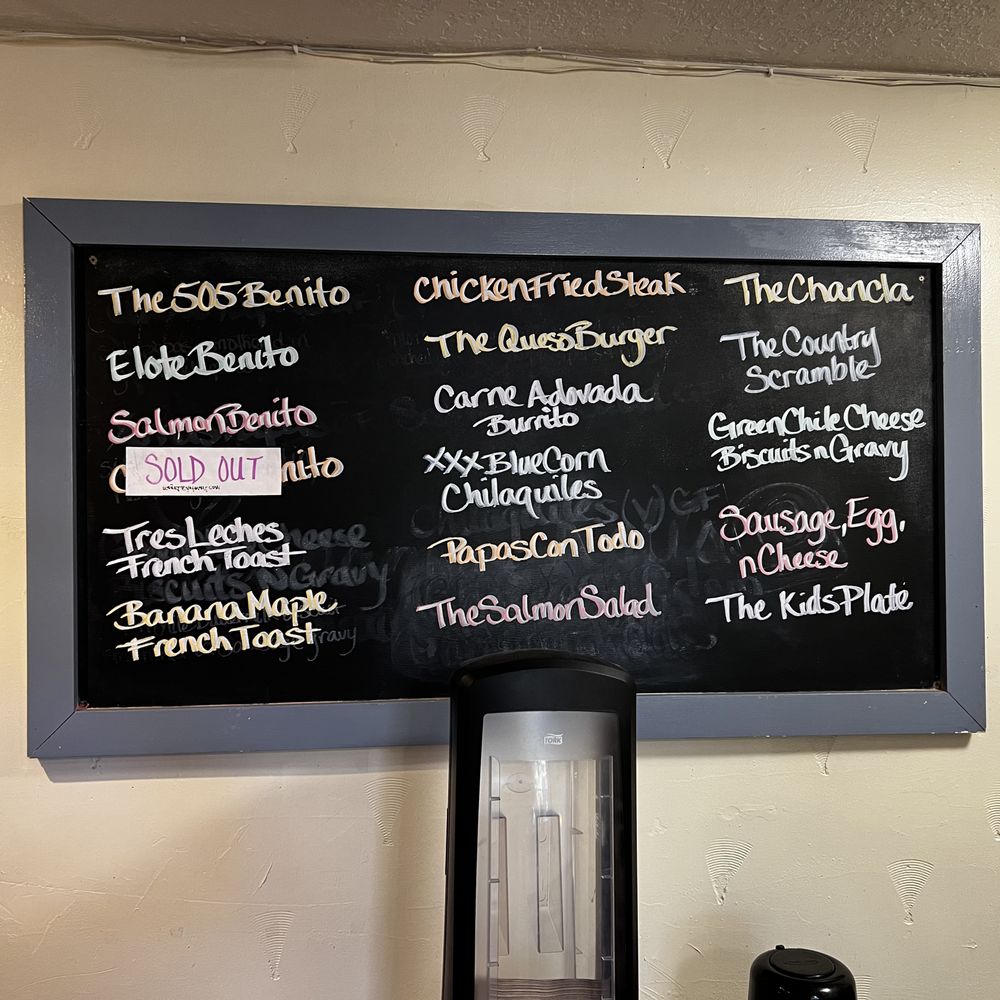 The 505 Benito
Elote Benito
Salmon Benito
SOLD OUT
Tres Leches
French Toast
Banana Maple
French Toast
Chicken Fried Steak
The Queso Burger
Carne Adovada
Burrito
XXX Blue Corn
Chilaquiles
Papas Con Todo
The Salmon Salad
The Chancla
The Country
Scramble
Green Chile Cheese
Biscuits n Gravy
Sausage, Egg,
n Cheese
The Kids Plate
TORK